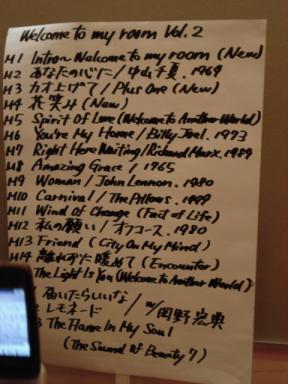 Welcome to my room Vol.2
M1 Intro~Welcome to my room (New)
M2 あなたの心に / 中山千夏. 1969
M3 カオ上げて / Plus One (New)
M4 花笑み (New)
M5 Spirit Of Love (Welcome to Another World)
M6 You're My Home / Billy Joel. 1973
M7 Right Here Waiting / Richard Marx. 1989
M8 Amazing Grace / 1965
M9 Woman / John Lennon. 1980
M10 Carnival / The Pillows. 1999
M11 Wind Of Change (Fact of Life)
M12 私の願い / オフコース. 1980
M13 Friend (City On My Mind)
M14 離れずに暖めて (Encounter)
The Light Is You (Welcome to Another World)
届いたらいいな / w/岡野宏典
レモネード
3 The Flame In My Soul
(The Sound Of Beauty 7)